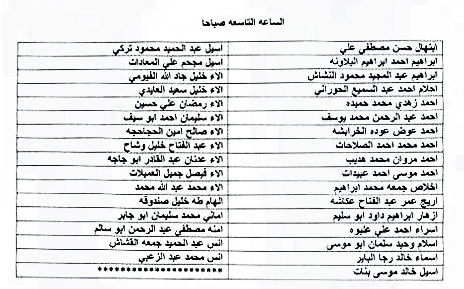 الساعه التاسعه صباحا
ابتهال حسن مصطفي علي
اسيل عبد الحميد محمود تركي
ابراهيم احمد ابراهيم البلاونه
اسيل مجحم علي المعادات
ابراهيم عبد المجيد محمود النشاش
الاء خليل جاد الله الفيومي
احلام احمد عبد السميع الحوراني
الاء خليل سعيد العايدي
احمد زهدي محمد حميده
الاء رمضان علي حسين
احمد عبد الرحمن محمد يوسف
الاء سليمان احمد ابو سيف
احمد عوض عوده الخرابشه
الاء صالح امين الحجاحجه
احمد محمد احمد الصلاحات
الاء عبد الفتاح خليل وشاح
احمد مروان محمد هديب
الاء عدنان عبد القادر ابو جاجه
احمد موسى احمد عبيدات
الاء فيصل جميل العميلات
اخلاص جمعه محمد ابراهيم
الاء محمد عبد الله محمد
اريج عمر عبد الفتاح عكاشه
الهام طه خليل صندوقه
ازهار ابراهيم داود ابو سليم
اماني محمد سليمان ابو جابر
اسراء احمد علي عليوه
امنه مصطفى عبد الرحمن ابو سالم
اسلام وحيد سلمان ابو موسى
انس عبد الحميد جمعه القشاش
اسماء خالد رجا الباير
انس محمد عبد الزعبي
اسيل خالد موسى بنات
**********************